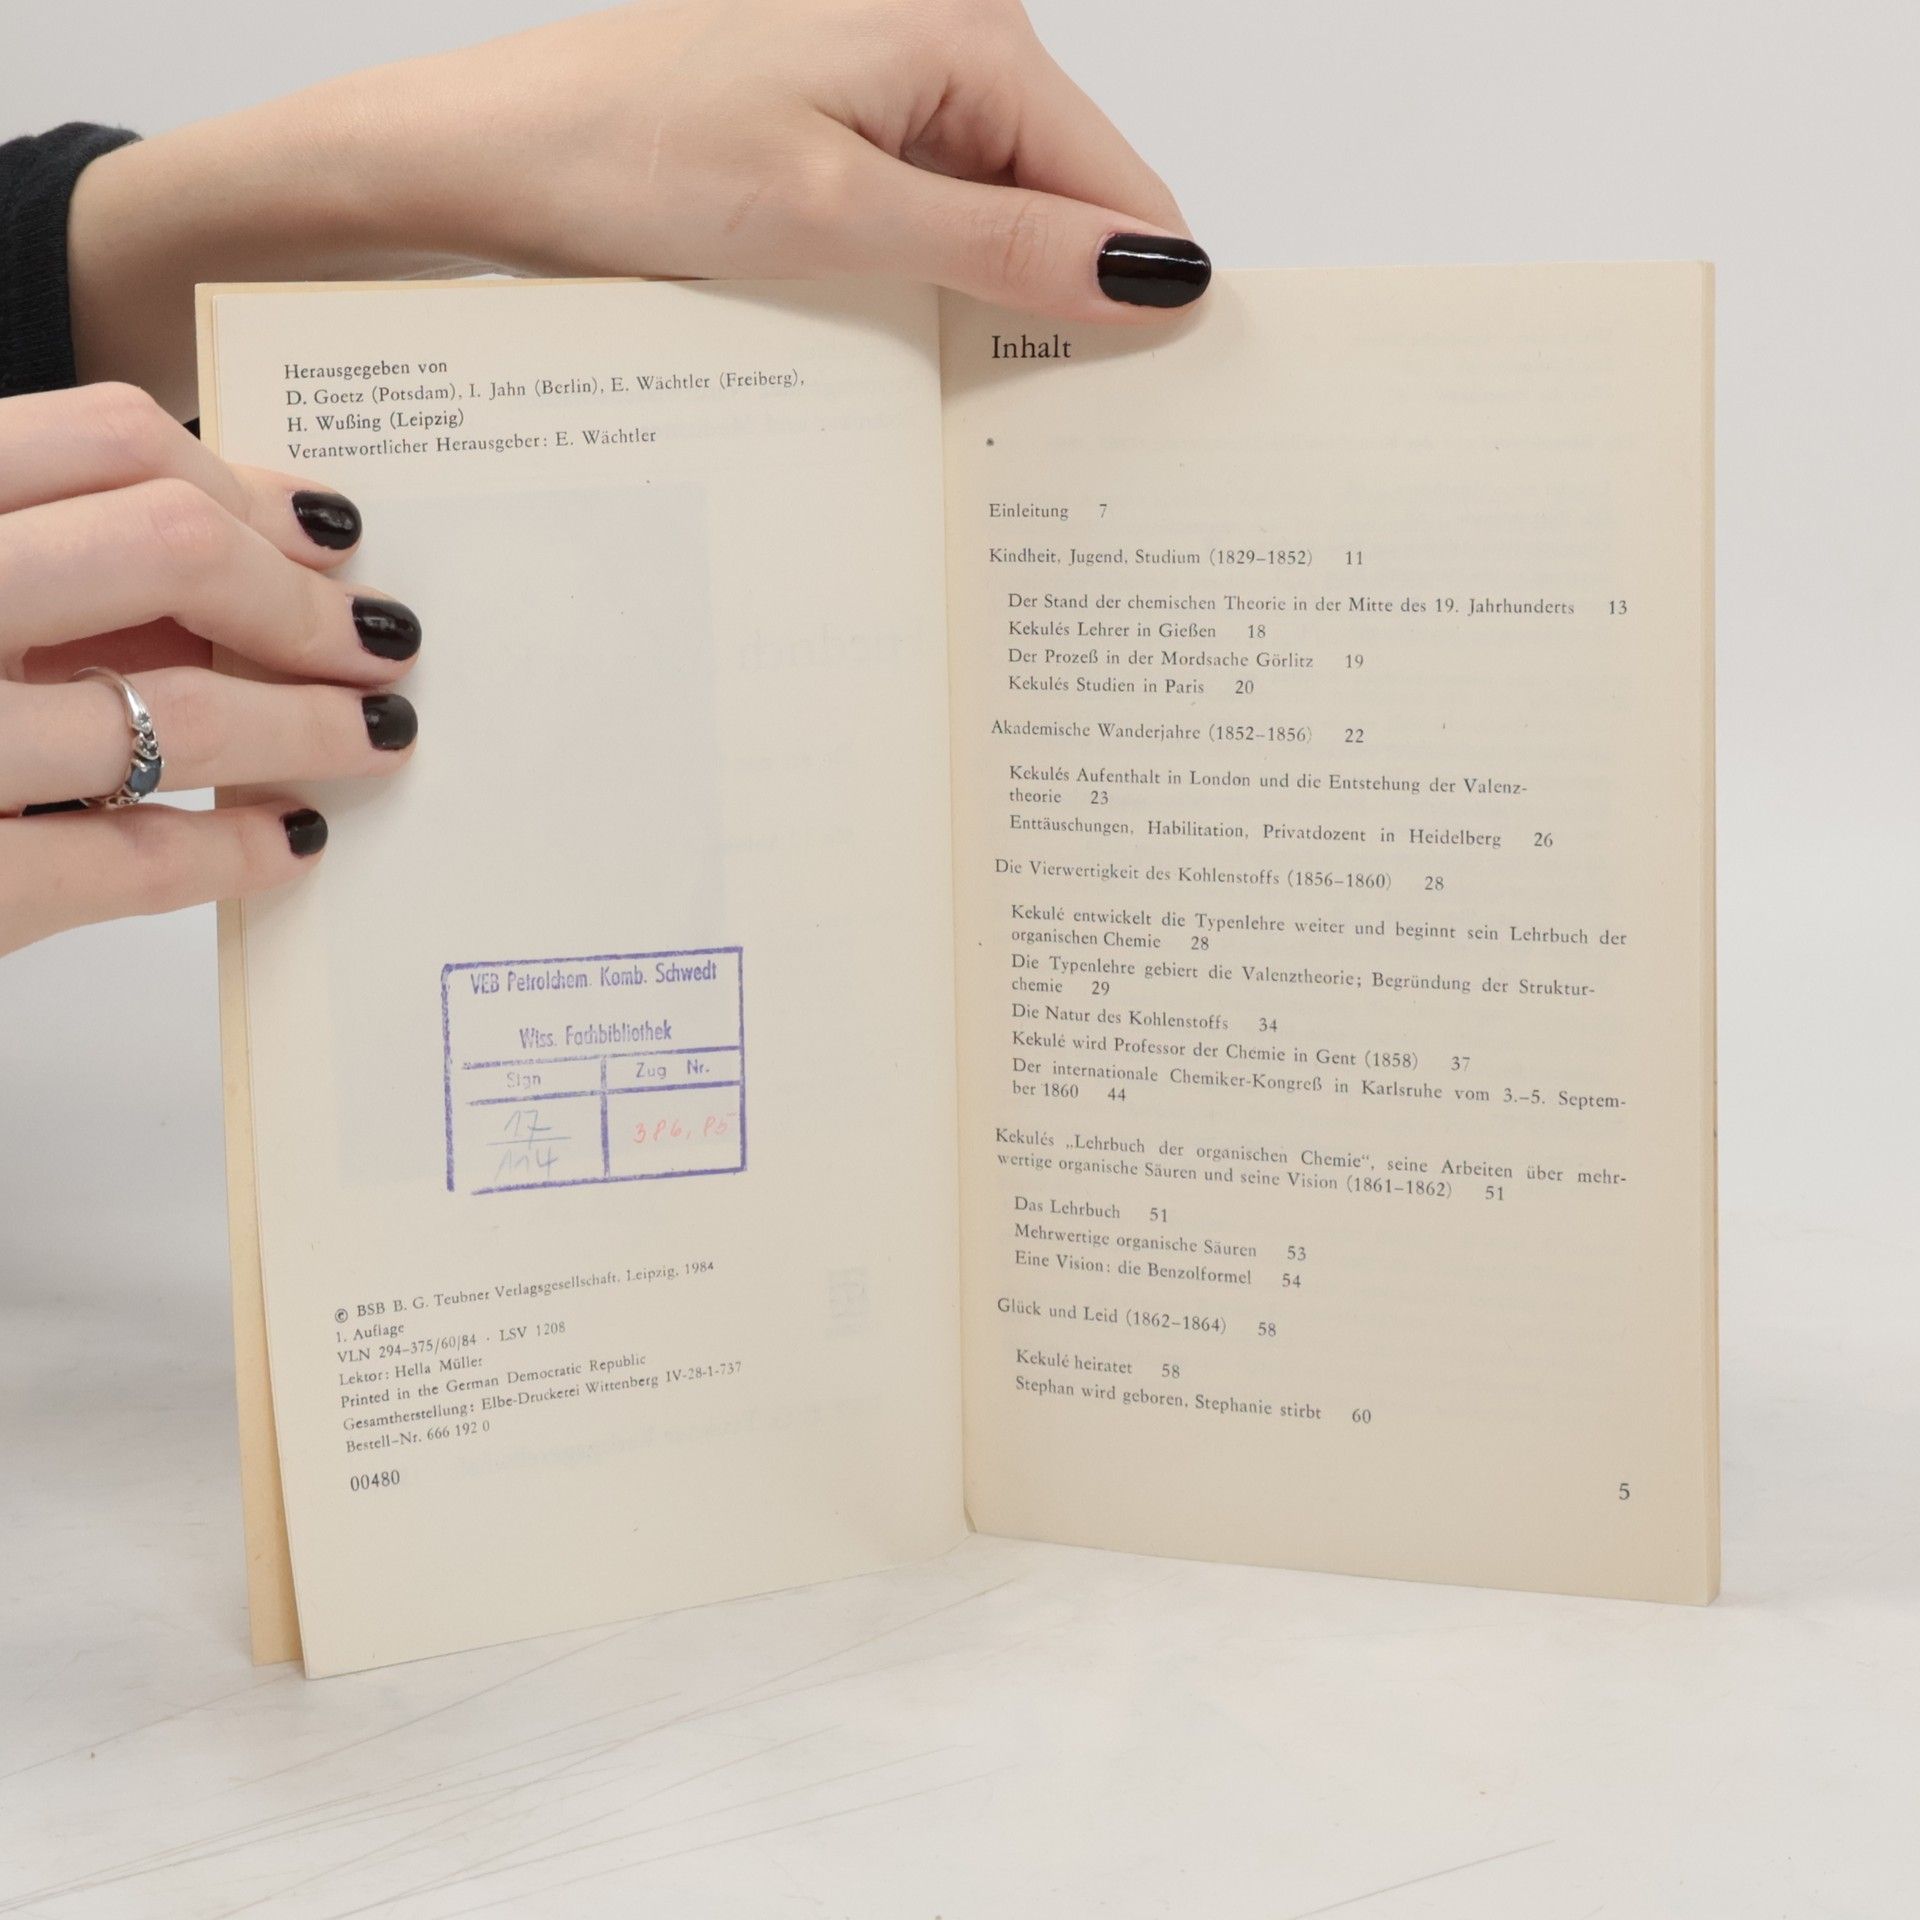 Herausgegeben von
D. Goetz (Potsdam), I. Jahn (Berlin), E. Wächtler (Freiberg),
H. Wußing (Leipzig)
Verantwortlicher Herausgeber: E. Wächtler
VEB Petrolchem. Komb. Schwedt
Wiss. Fachbibliothek
Sign
Zug Nr.
17
114
386, 85
© BSB B. G. Teubner Verlagsgesellschaft, Leipzig, 1984
1. Auflage
VLN 294–375/60/84 · LSV 1208
Lektor: Hella Müller
Printed in the German Democratic Republic
Gesamtherstellung: Elbe-Druckerei Wittenberg IV-28-1-737
Bestell–Nr. 666 192 0
00480
Inhalt
Einleitung 7
Kindheit, Jugend, Studium (1829–1852) 11
Der Stand der chemischen Theorie in der Mitte des 19. Jahrhunderts 13
Kekulés Lehrer in Gießen 18
Der Prozeß in der Mordsache Görlitz 19
Kekulés Studien in Paris 20
Akademische Wanderjahre (1852–1856) 22
Kekulés Aufenthalt in London und die Entstehung der Valenz-
theorie 23
Enttäuschungen, Habilitation, Privatdozent in Heidelberg 26
Die Vierwertigkeit des Kohlenstoffs (1856–1860) 28
Kekulé entwickelt die Typenlehre weiter und beginnt sein Lehrbuch der
organischen Chemie 28
Die Typenlehre gebiert die Valenztheorie; Begründung der Struktur-
chemie 29
Die Natur des Kohlenstoffs 34
Kekulé wird Professor der Chemie in Gent (1858) 37
Der internationale Chemiker-Kongreß in Karlsruhe vom 3.–5. Septem-
ber 1860 44
Kekulés „Lehrbuch der organischen Chemie“, seine Arbeiten über mehr-
wertige organische Säuren und seine Vision (1861–1862) 51
Das Lehrbuch 51
Mehrwertige organische Säuren 53
Eine Vision: die Benzolformel 54
Glück und Leid (1862–1864) 58
Kekulé heiratet 58
Stephan wird geboren, Stephanie stirbt 60
5